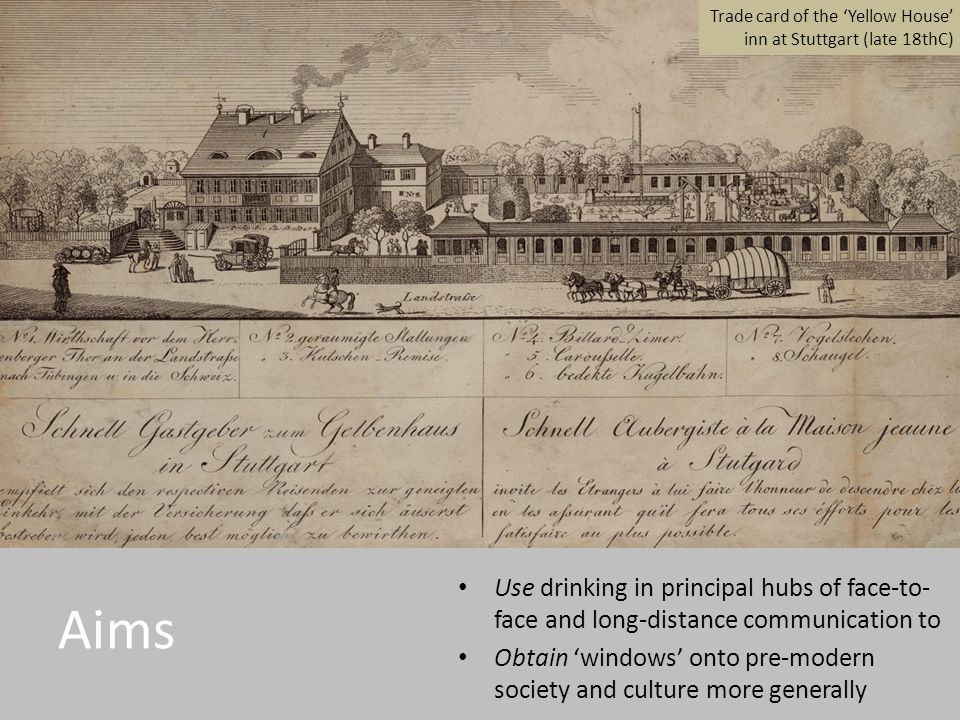 Trade card of the ‘Yellow House’
inn at Stuttgart (late 18thC)
Landstraße
Nº 1. Wirthschaft vor dem Herr-
enberger Thor an der Landstraße
nach Tübingen u. in die Schweiz.
Nº 2. geraumigte Stallungen
„ 3. Kutschen-Remise.
Nº 4. Billard-Zimer.
„ 5. Carousselle.
„ 6. bedekte Kugelbahn.
Nº 7. Vogelstechen.
„ 8. Schaugel.
Schnell Gastgeber zum Gelbenhaus
in Stuttgart
empfielt sich den respectiven Reisenden zur geneigten
Einkehr, mit der Versicherung daß er sich äuserst
bestreben wird, jeden best möglich zu bewirthen.
Schnell Aubergiste à la Maison jeaune
à Stutgard
invite les Etrangers à lui faire l'honneur de descendre chéz lui
en les assurant qu'il fera tous ses éfforts pour les
satisfaire au plus possible.
Aims
• Use drinking in principal hubs of face-to-
face and long-distance communication to
• Obtain ‘windows’ onto pre-modern
society and culture more generally